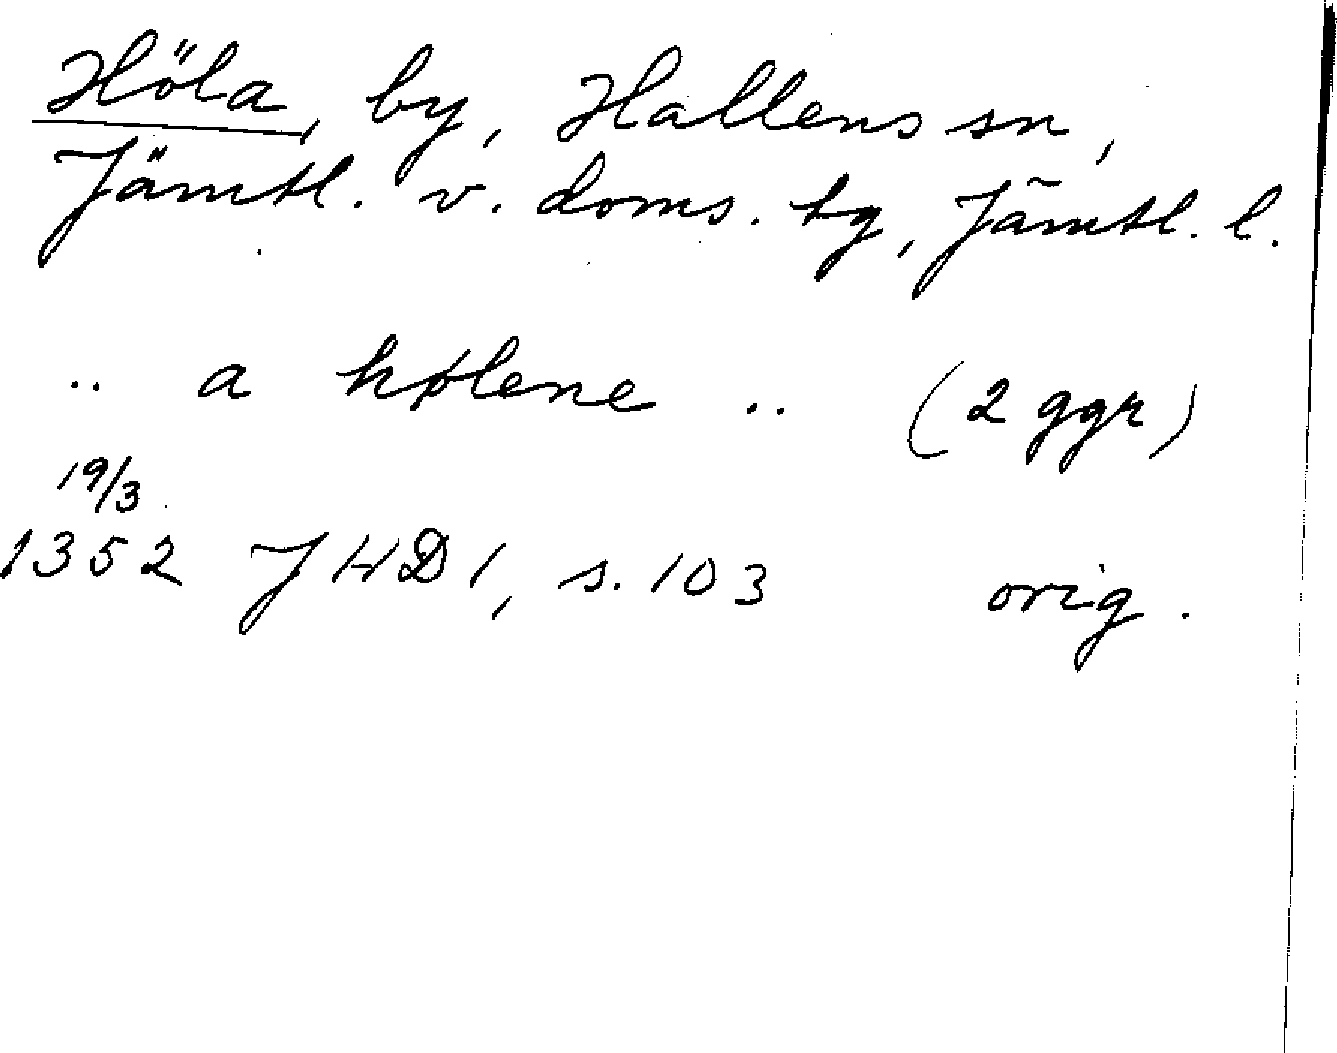 Höla, by, Hallens sn,
Jämtl. v. doms. tg, Jämtl. l.
.. a hølene .. (2 ggr)
19/3
1352 JHD 1, s. 103 orig.